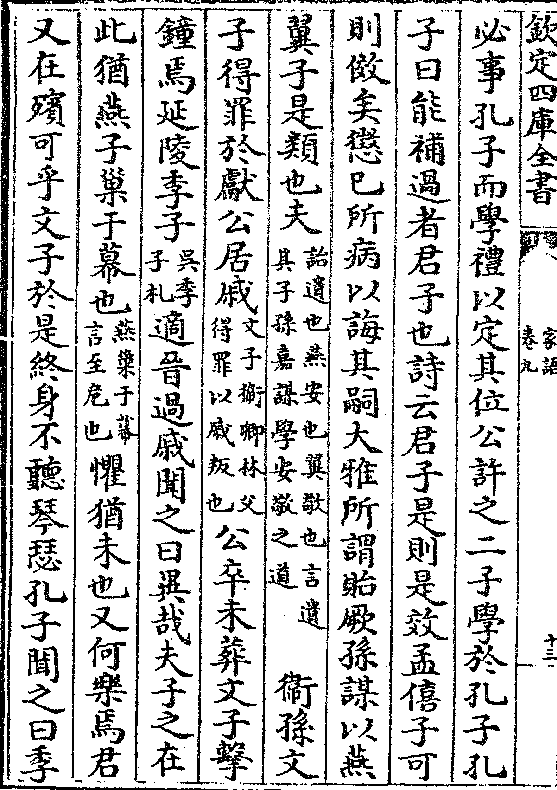 欽定四庫全書
家語
卷九
十三
必事孔子而學禮以定其位公許之二子學於孔子孔
子曰能補過者君子也詩云君子是則是效孟僖子可
則傚矣懲已所病以誨其嗣大雅所謂貽厥孫謀以燕
翼子是類也夫詒遺也燕安也翼敬也言遺其子孫嘉謀學安敬之道 衞孫文
子得罪於獻公居戚文子衞卿林父得罪以戚叛也公卒未葬文子擊
鐘焉延陵季子吳季子札適晉過戚聞之曰異哉夫子之在
此猶燕子巢于幕也燕巢于幕言至危也懼猶未也又何樂焉君
又在殯可乎文子於是終身不聽琴瑟孔子聞之曰季